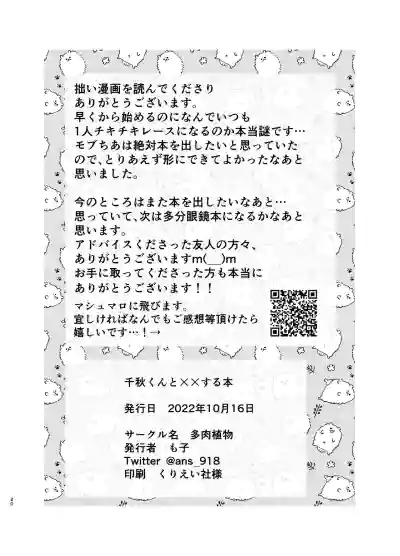 拙い漫画を読んでくださり
ありがとうございます。
早くから始めるのになんでいつも
1人チキチキレースになるのか本当謎です…
モブちあは絶対本を出したいと思っていた
ので、とりあえず形にできてよかったなあと
思いました。
今のところはまた本を出したいなあと…
思っていて、次は多分眼鏡本になるかなあと
思います。
アドバイスくださった友人の方々、
ありがとうございますm(__)m
お手に取ってくださった方も本当に
ありがとうございます！！
マシュマロに飛びます。
宜しければなんでもご感想等頂けたら
嬉しいです…！→
千秋くんと××する本
発行日　2022年10月16日
サークル名　多肉植物
発行者　も子
Twitter @ans_918
印刷　くりえい社様